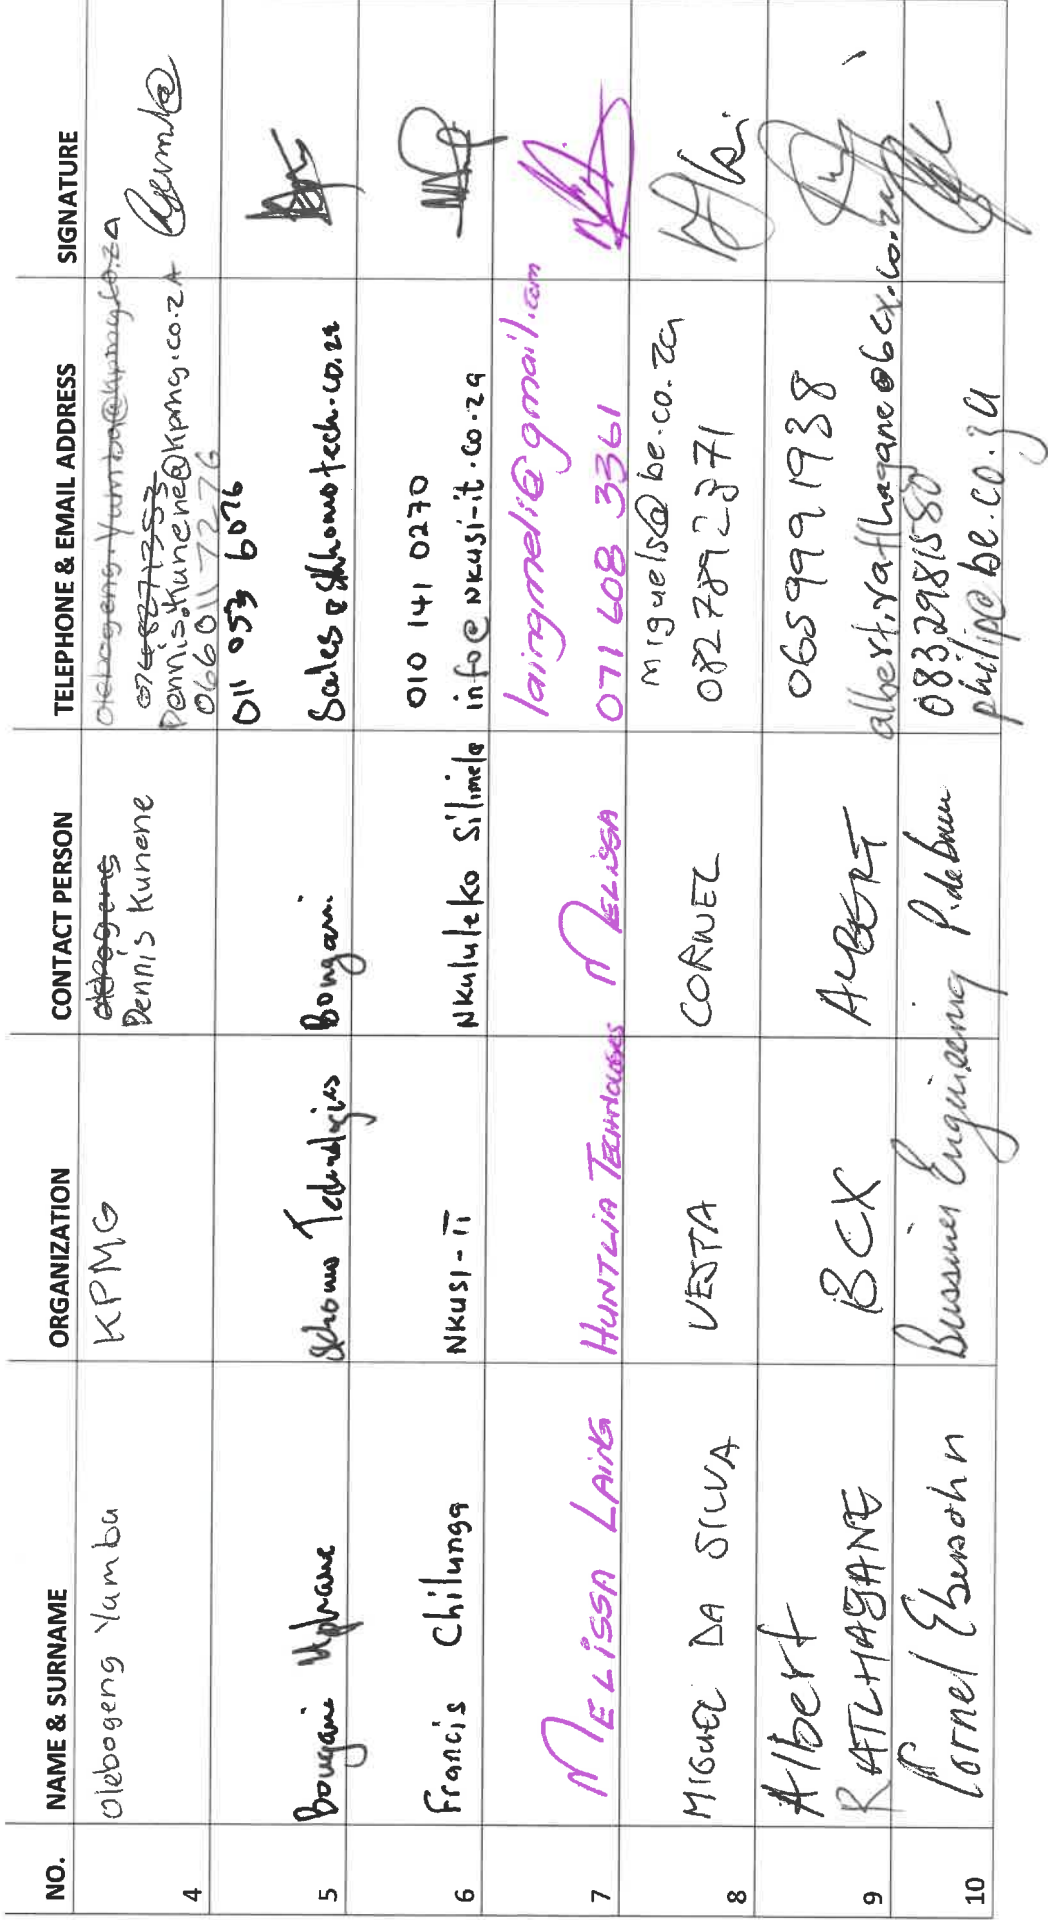 NO. NAME & SURNAME ORGANIZATION CONTACT PERSON TELEPHONE & EMAIL ADDRESS SIGNATURE
4 Olebogeng Yumba KPMG Olebogeng Olebogeng.Yumba@kpmg.co.za
Dennis Kunene 0748871353
Dennis.Kunene@kpmg.co.za
0660117276
5 Bongani Skhomo Technologies Bongani 011 053 6026
Sales@Skhomotech.co.za
6 Francis Chilunga Nkusi-IT Nkululeko Silimela 010 141 0270
info@nkusi-it.co.za
7 MELISSA LAING HUNTLIA TECHNOLOGIES MELISSA laingmeli@gmail.com
071 608 3361
8 MIGUEL DA SILVA VESTA CORNEL miguels@be.co.za
9 Albert RATLHAGANE BCX ALBERT 0659991938
albert.ratlhagane@bcx.co.za
10 Cornel Ebersohn Bussines Engineering P.de Bruin 0832981580
philip@be.co.za